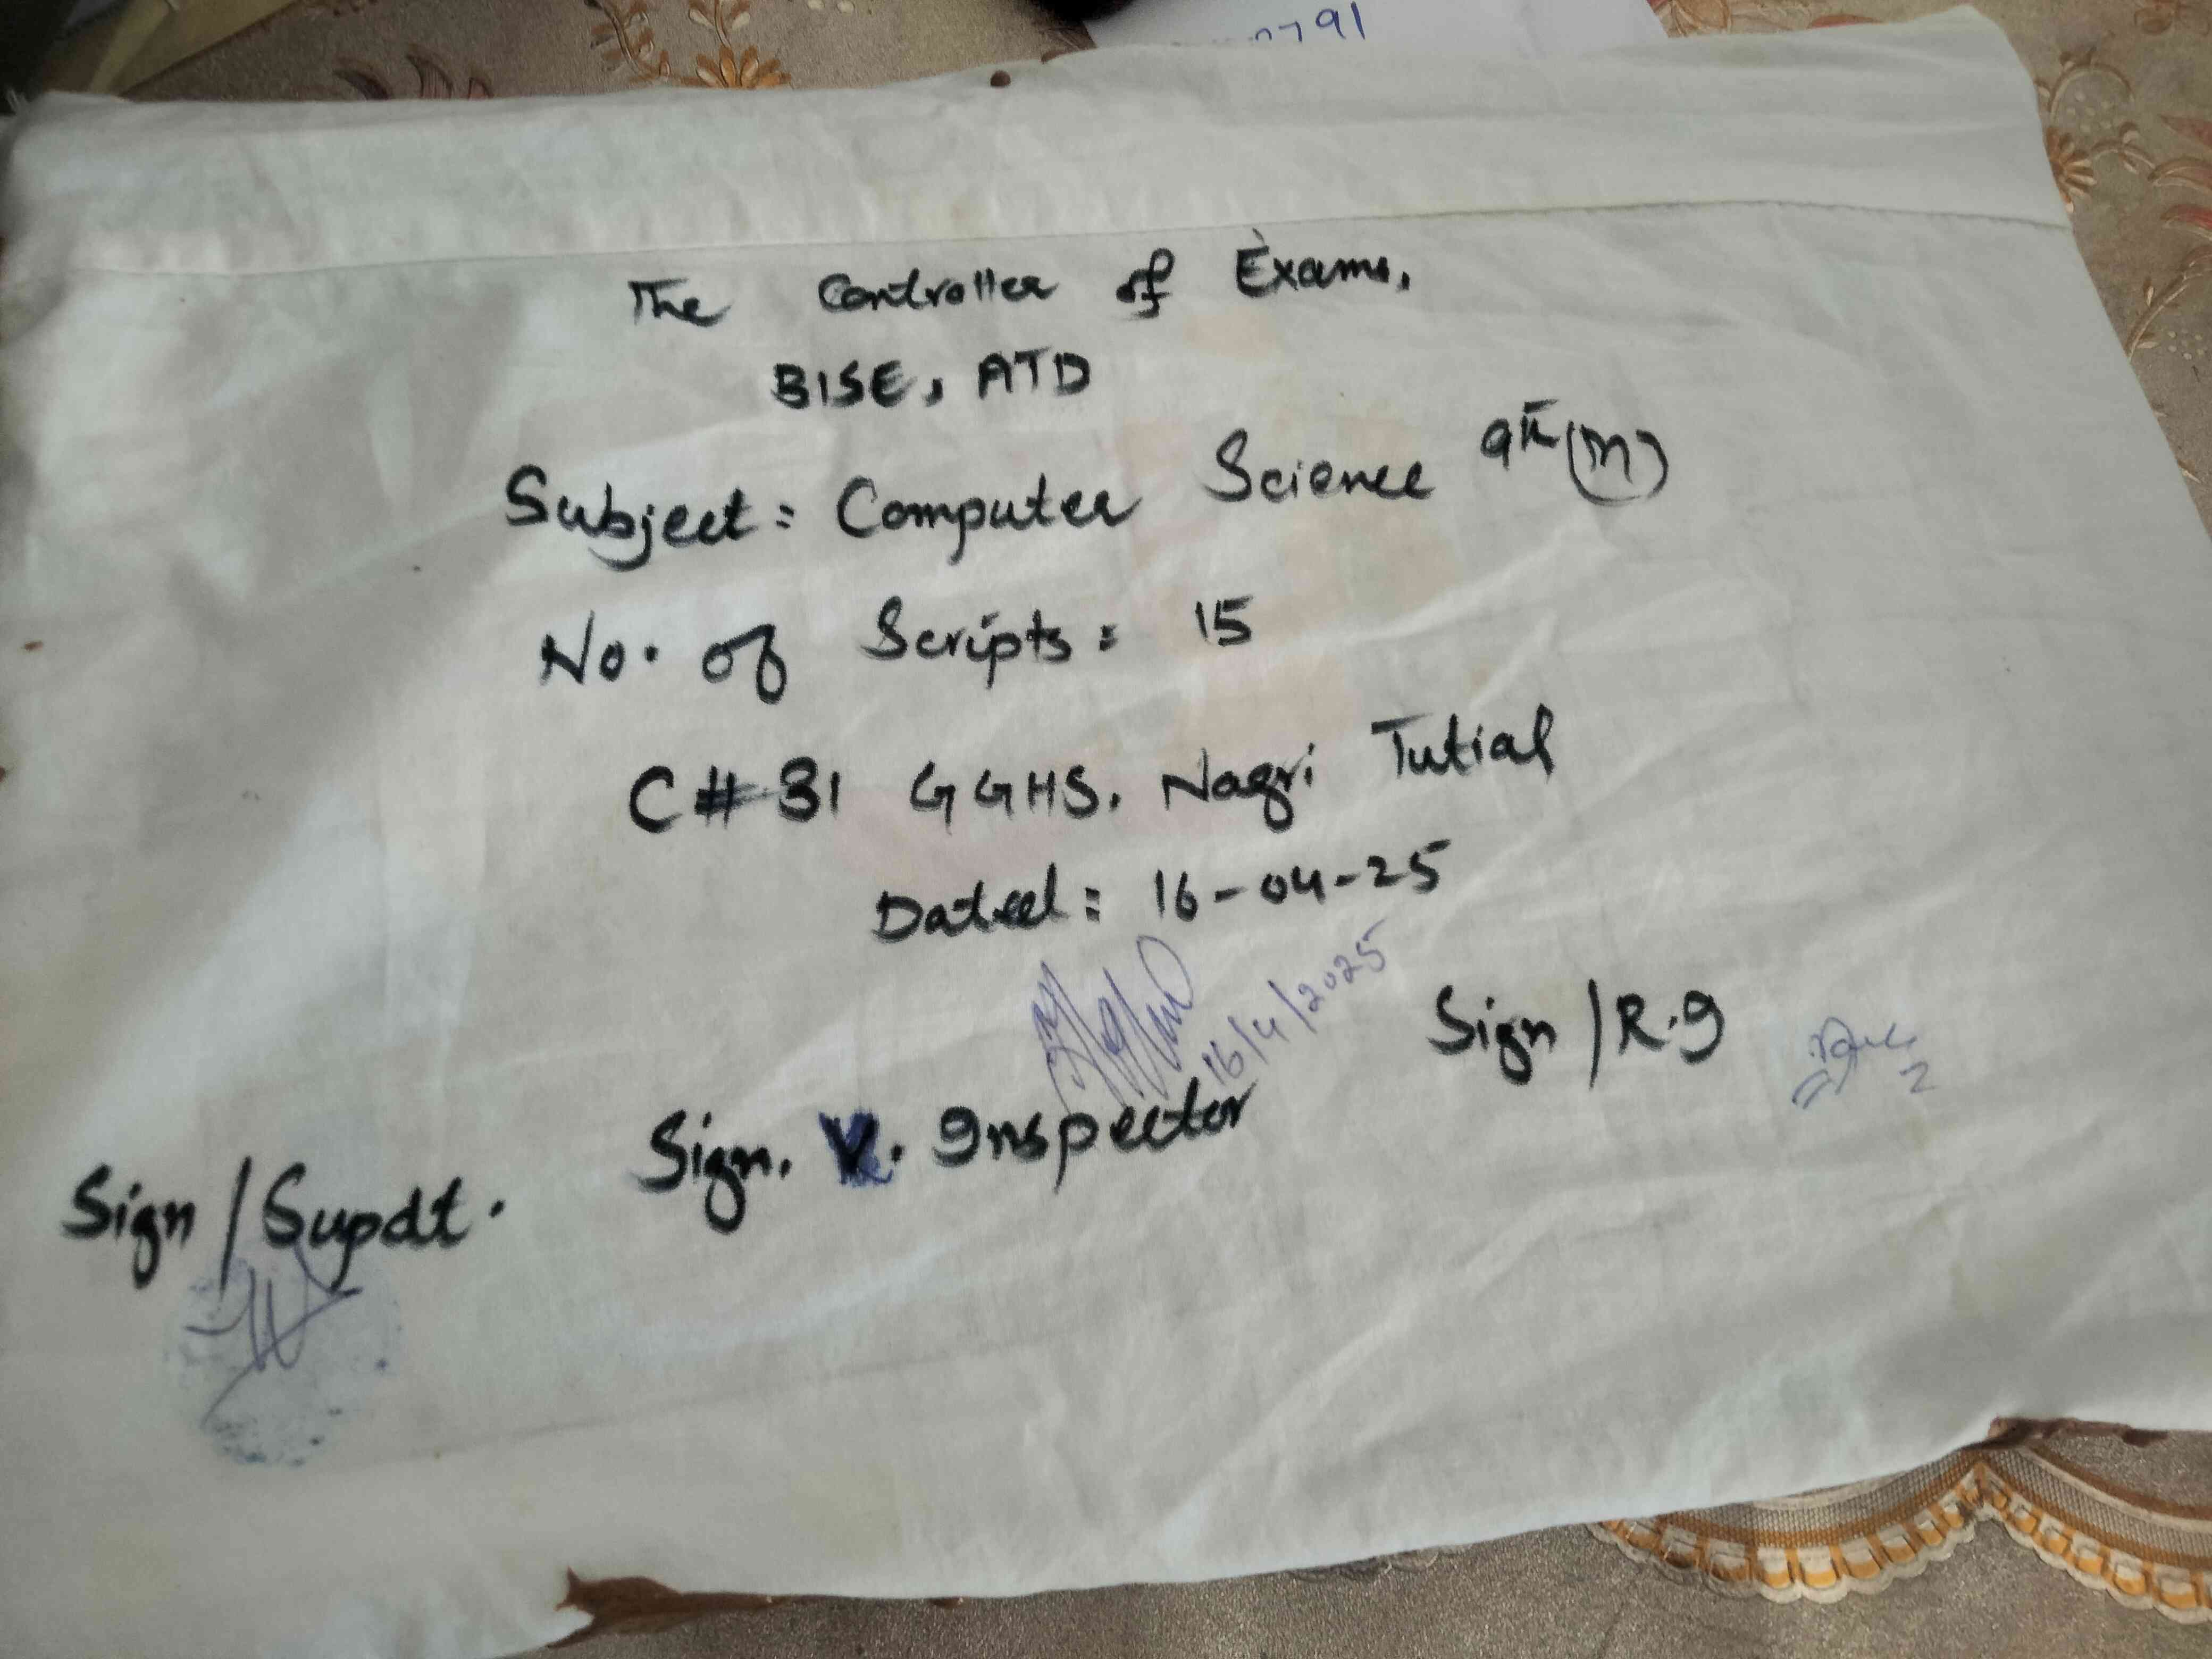 2791
The Controller of Exams,
BISE, ATD
Subject: Computer Science 9th (M)
No. of Scripts: 15
C# 31 GGHS. Nagri Tutial
Dated: 16-04-25
16/4/2025
Sign / R.I
Sign. V. Inspector
Sign / Supdt.